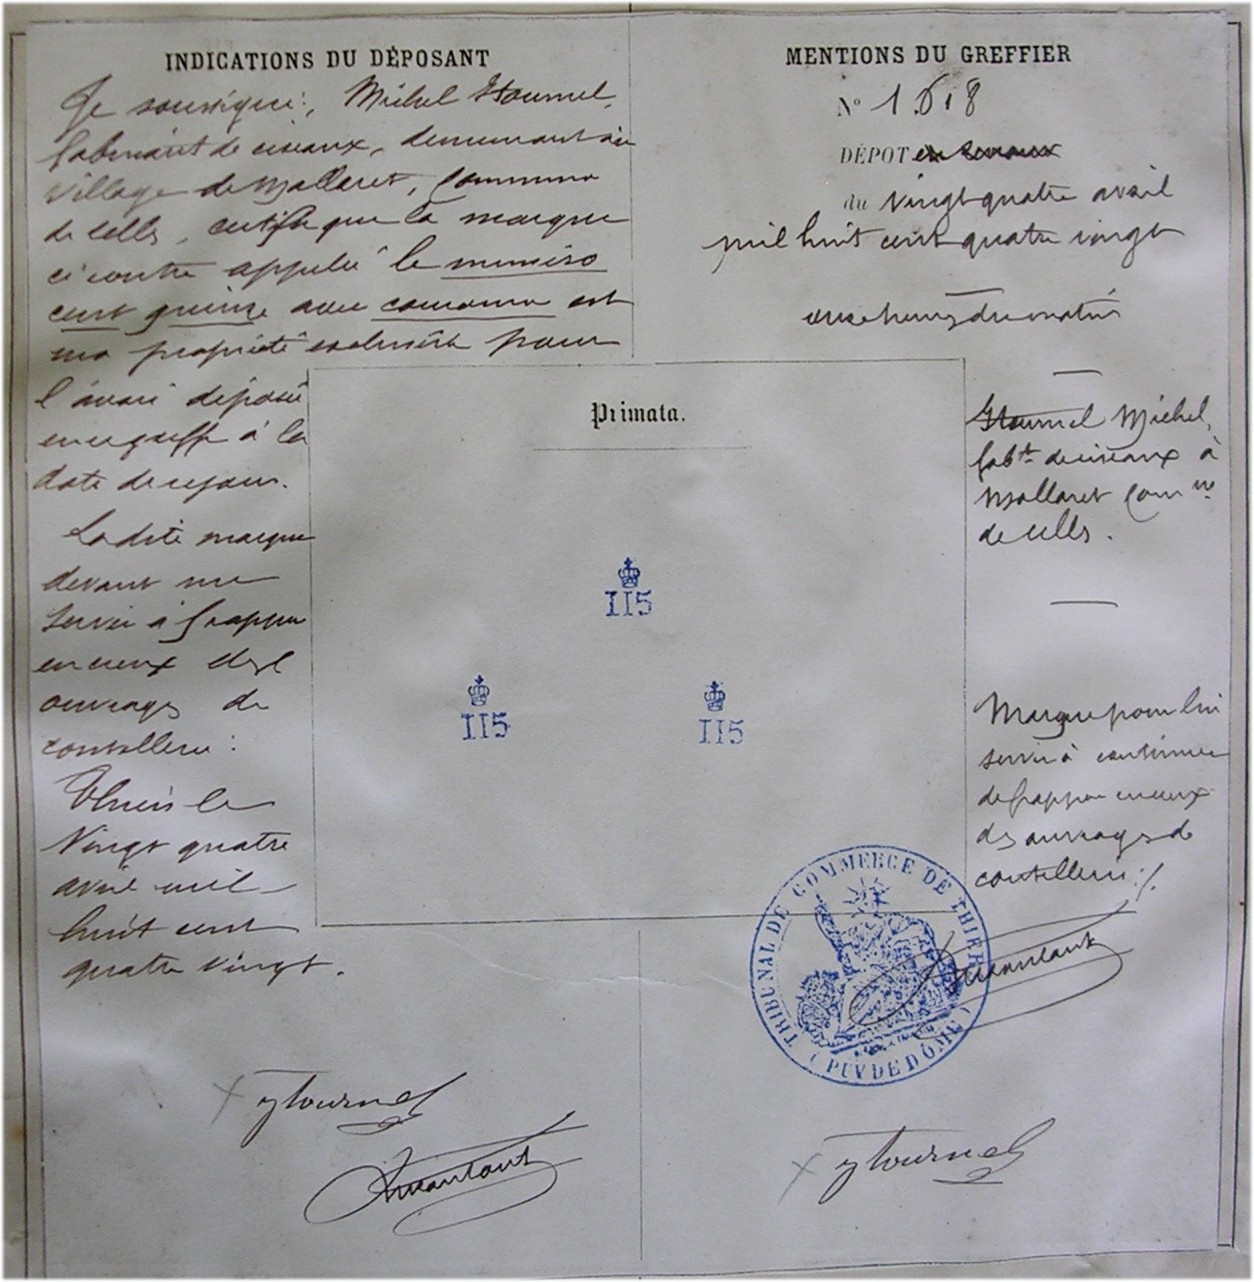 INDICATIONS DU DÉPOSANT
Je soussigné, Michel
fabricant de ciseaux, demeurant au
village de Mallaret, commune
de Celles, certifie que la marque
ci contre appelée le numéro
cent quinze avec couronne est
ma propriété exclusive pour
l'avoir déposée
en ce greffe à la
date de ce jour.
Ladite marque
devant me
servir à frapper
en creux des
ouvrages de
coutellerie
Thiers le
Vingt quatre
avril mil
huit cent
quatre vingt.
MENTIONS DU GREFFIER
N° 1618
DÉPOT
du vingt quatre avril
mil huit cent quatre vingt
onze heures du matin
Primata.
115
115
115
Michel,
fabt de ciseaux à
Mallaret Comne
de Celles.
Marque pour lui
servir à continuer
de frapper en creux
des ouvrages de
coutellerie
TRIBUNAL DE COMMERCE DE THIERS
(PUY DE DÔME)